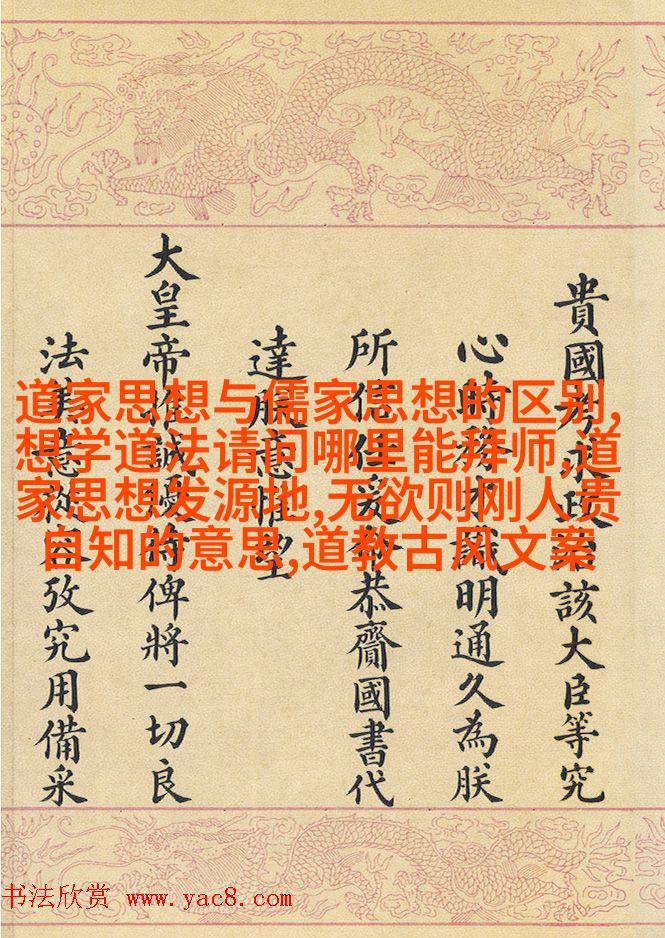 貴國考求政治該大臣等究
心時務才識明通久為朕
所信任爰恭齎國書代
達朕意惟望
大皇帝誠俾將一切良
法美意攷究用備采
道家思想与儒家思想的区别,
想学道法请问哪里能拜师,道
家思想发源地,无欲则刚人贵
自知的意思,道教古风文案
书法欣赏 www.yac8.com